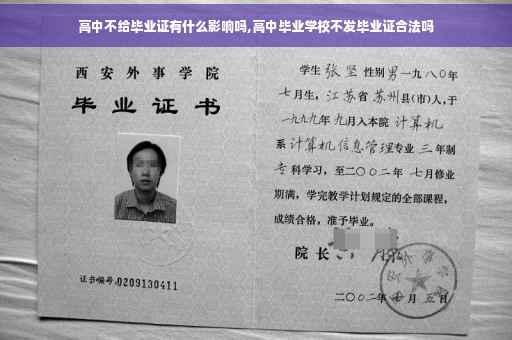 高中不给毕业证有什么影响吗,高中毕业学校不发毕业证合法吗
西安外事学院
毕业证书
证书编号:0209130411
学生 张坚 性别 男 一九八〇年
七月生, 江苏省 苏州县(市)人,于
一九九九年 九月入本院 计算机
系 计算机信息管理专业 三 年制
专科学习, 至二〇〇二年 七月修业
期满, 学完教学计划规定的全部课程,
成绩合格, 准予毕业。
院长
二〇〇二年 七月 五日